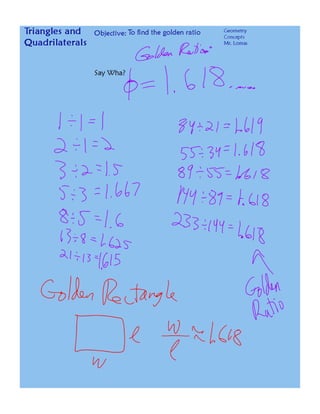 Triangles and Quadrilaterals
Objective: To find the golden ratio
Geometry
Concepts
Mr. Lomas
Golden Ratio:
Say Wha?
ϕ = 1.618....
1 ÷ 1 = 1
2 ÷ 1 = 2
3 ÷ 2 = 1.5
5 ÷ 3 = 1.667
8 ÷ 5 = 1.6
13 ÷ 8 = 1.625
21 ÷ 13 = 1.615
34 ÷ 21 = 1.619
55 ÷ 34 = 1.618
89 ÷ 55 = 1.618
144 ÷ 89 = 1.618
233 ÷ 144 = 1.618
Golden
Ratio
Golden Rectangle
l
w
w/l ≈ 1.618